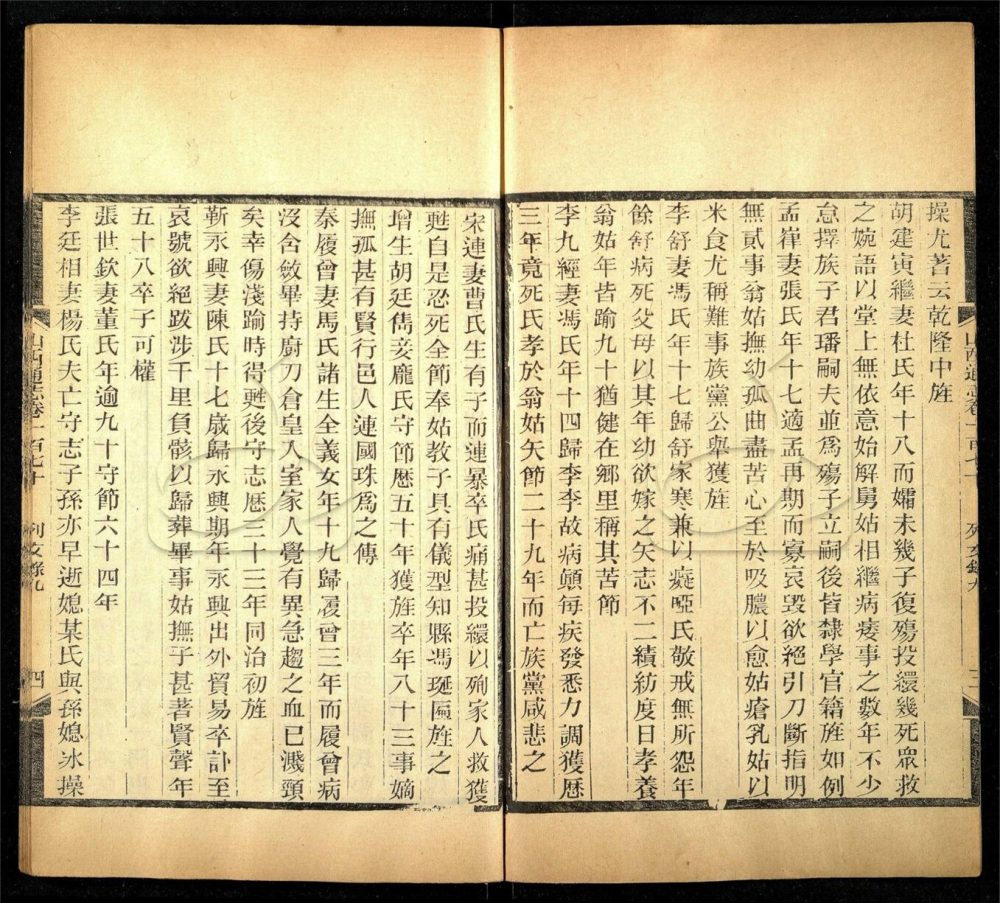 操尤著云乾隆中旌
胡建寅繼妻杜氏年十八而孀未幾子復殤投繯幾死眾救
之婉語以堂上無依意始解舅姑相繼病痿事之數年不少
怠擇族子君璠嗣夫並為殤子立嗣後皆隸學官籍旌如例
孟嵂妻張氏年十七適孟再期而寡哀毀欲絕引刀斷指明
無貳事翁姑撫幼孤曲盡苦心至於吸膿以愈姑瘡乳姑以
米食尤稱難事族黨公舉獲旌
李舒妻馮氏年十七歸舒家寒兼以癡啞氏敬戒無所怨年
餘舒病死父母以其年幼欲嫁之矢志不二績紡度日孝養
翁姑年皆踰九十猶健在鄉里稱其苦節
李九經妻馮氏年十四歸李李故病顛每疾發悉力調獲歷
三年竟死氏孝於翁姑矢節二十九年而亡族黨咸悲之
山西通志卷一百七十 列女錄九 三
宋連妻曹氏生有子而連暴卒氏痛甚投繯以殉家人救獲
甦自是忍死全節奉姑教子具有儀型知縣馮珽匾旌之
增生胡廷雋妾龐氏守節歷五十年獲旌卒年八十三事嫡
撫孤甚有賢行邑人連國珠為之傳
秦履曾妻馬氏諸生全義女年十九歸履曾三年而履曾病
沒含斂畢持廚刀倉皇入室家人覺有異急趨之血已濺頸
矣幸傷淺踰時得甦後守志歷三十三年同治初旌
靳永興妻陳氏十七歲歸永興期年永興出外貿易卒訃至
哀號欲絕跋涉千里負骸以歸葬畢事姑撫子甚著賢聲年
五十八卒子可權
張世欽妻董氏年逾九十守節六十四年
李廷相妻楊氏夫亡守志子孫亦早逝媳某氏與孫媳冰操
山西通志卷一百七十 列女錄九 四